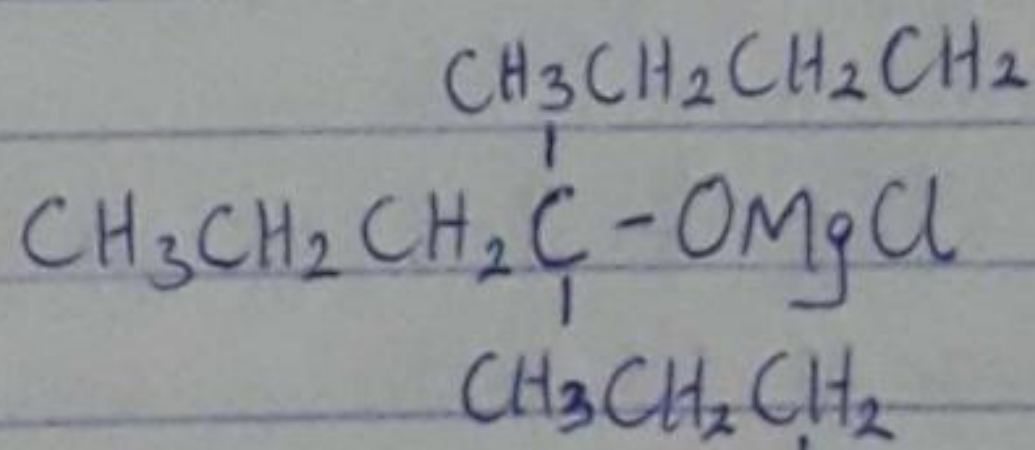 CH3CH2CH2CH2
CH3CH2CH2C-OMgCl
CH3CH2CH2